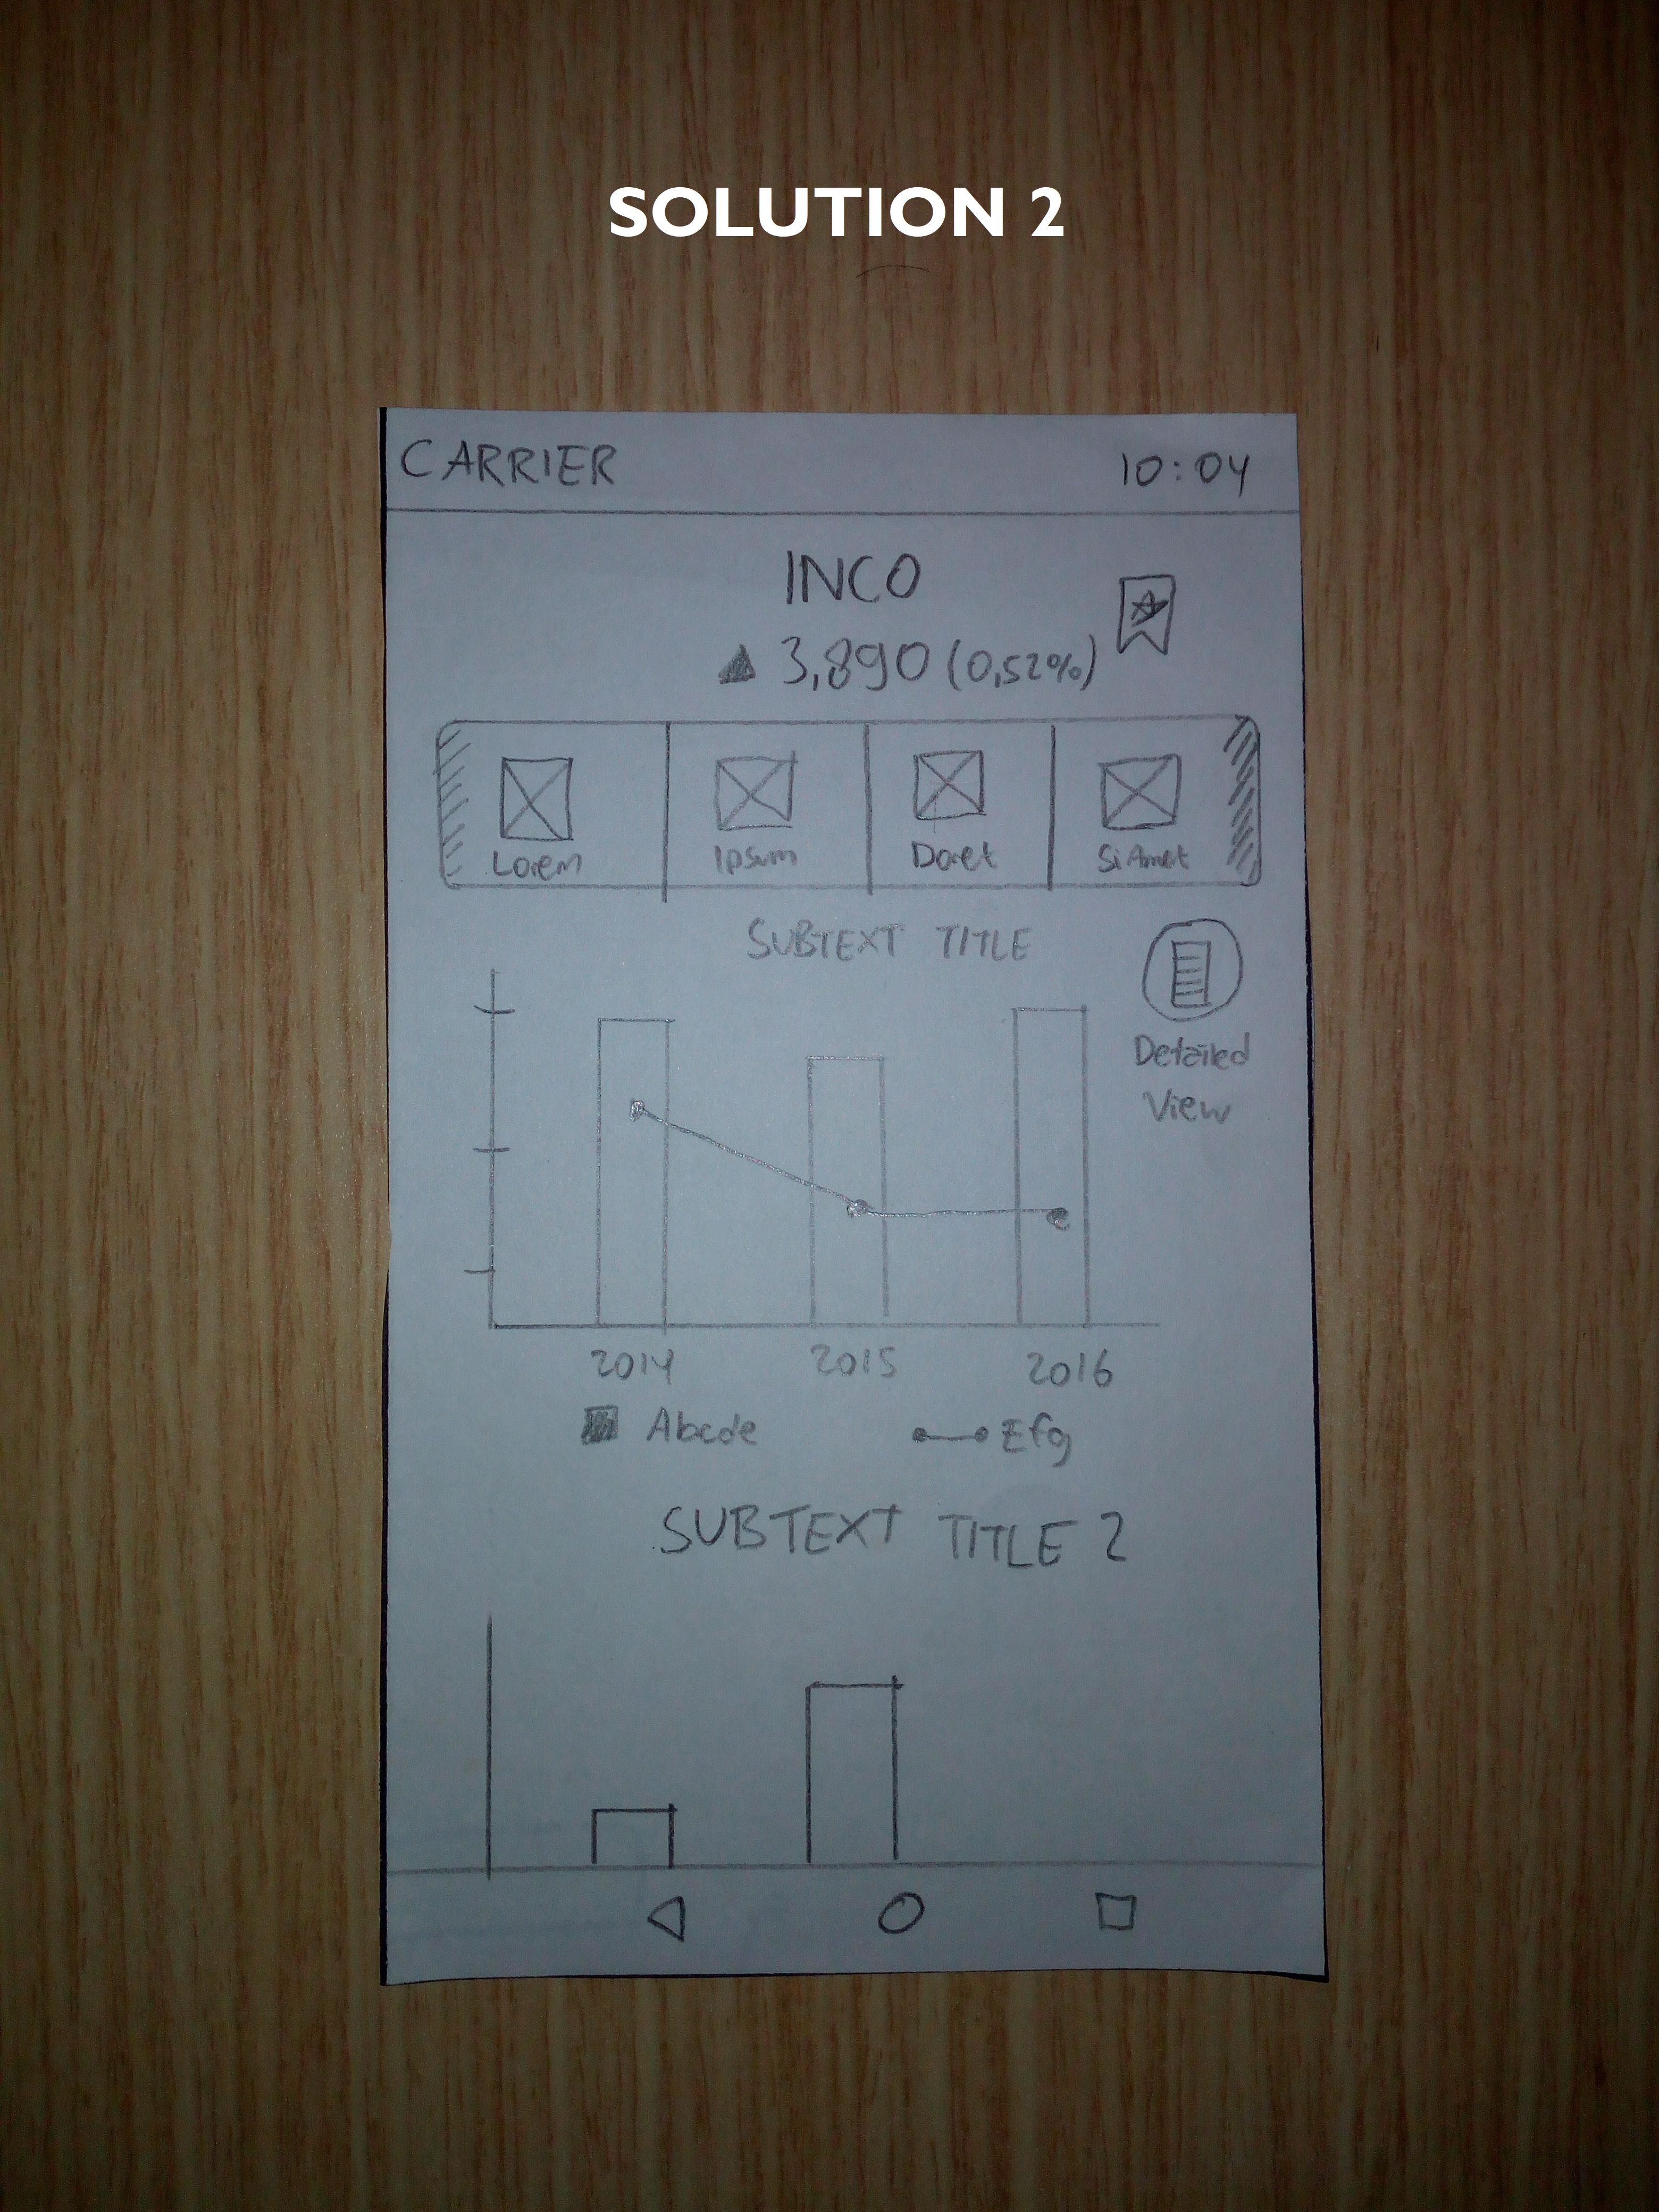 SOLUTION 2
CARRIER 10:04
INCO
▲ 3,890 (0,52%)
Lorem Ipsum Doret Si Amet
SUBTEXT TITLE
Detailed
View
2014 2015 2016
Abcde Efg
SUBTEXT TITLE 2